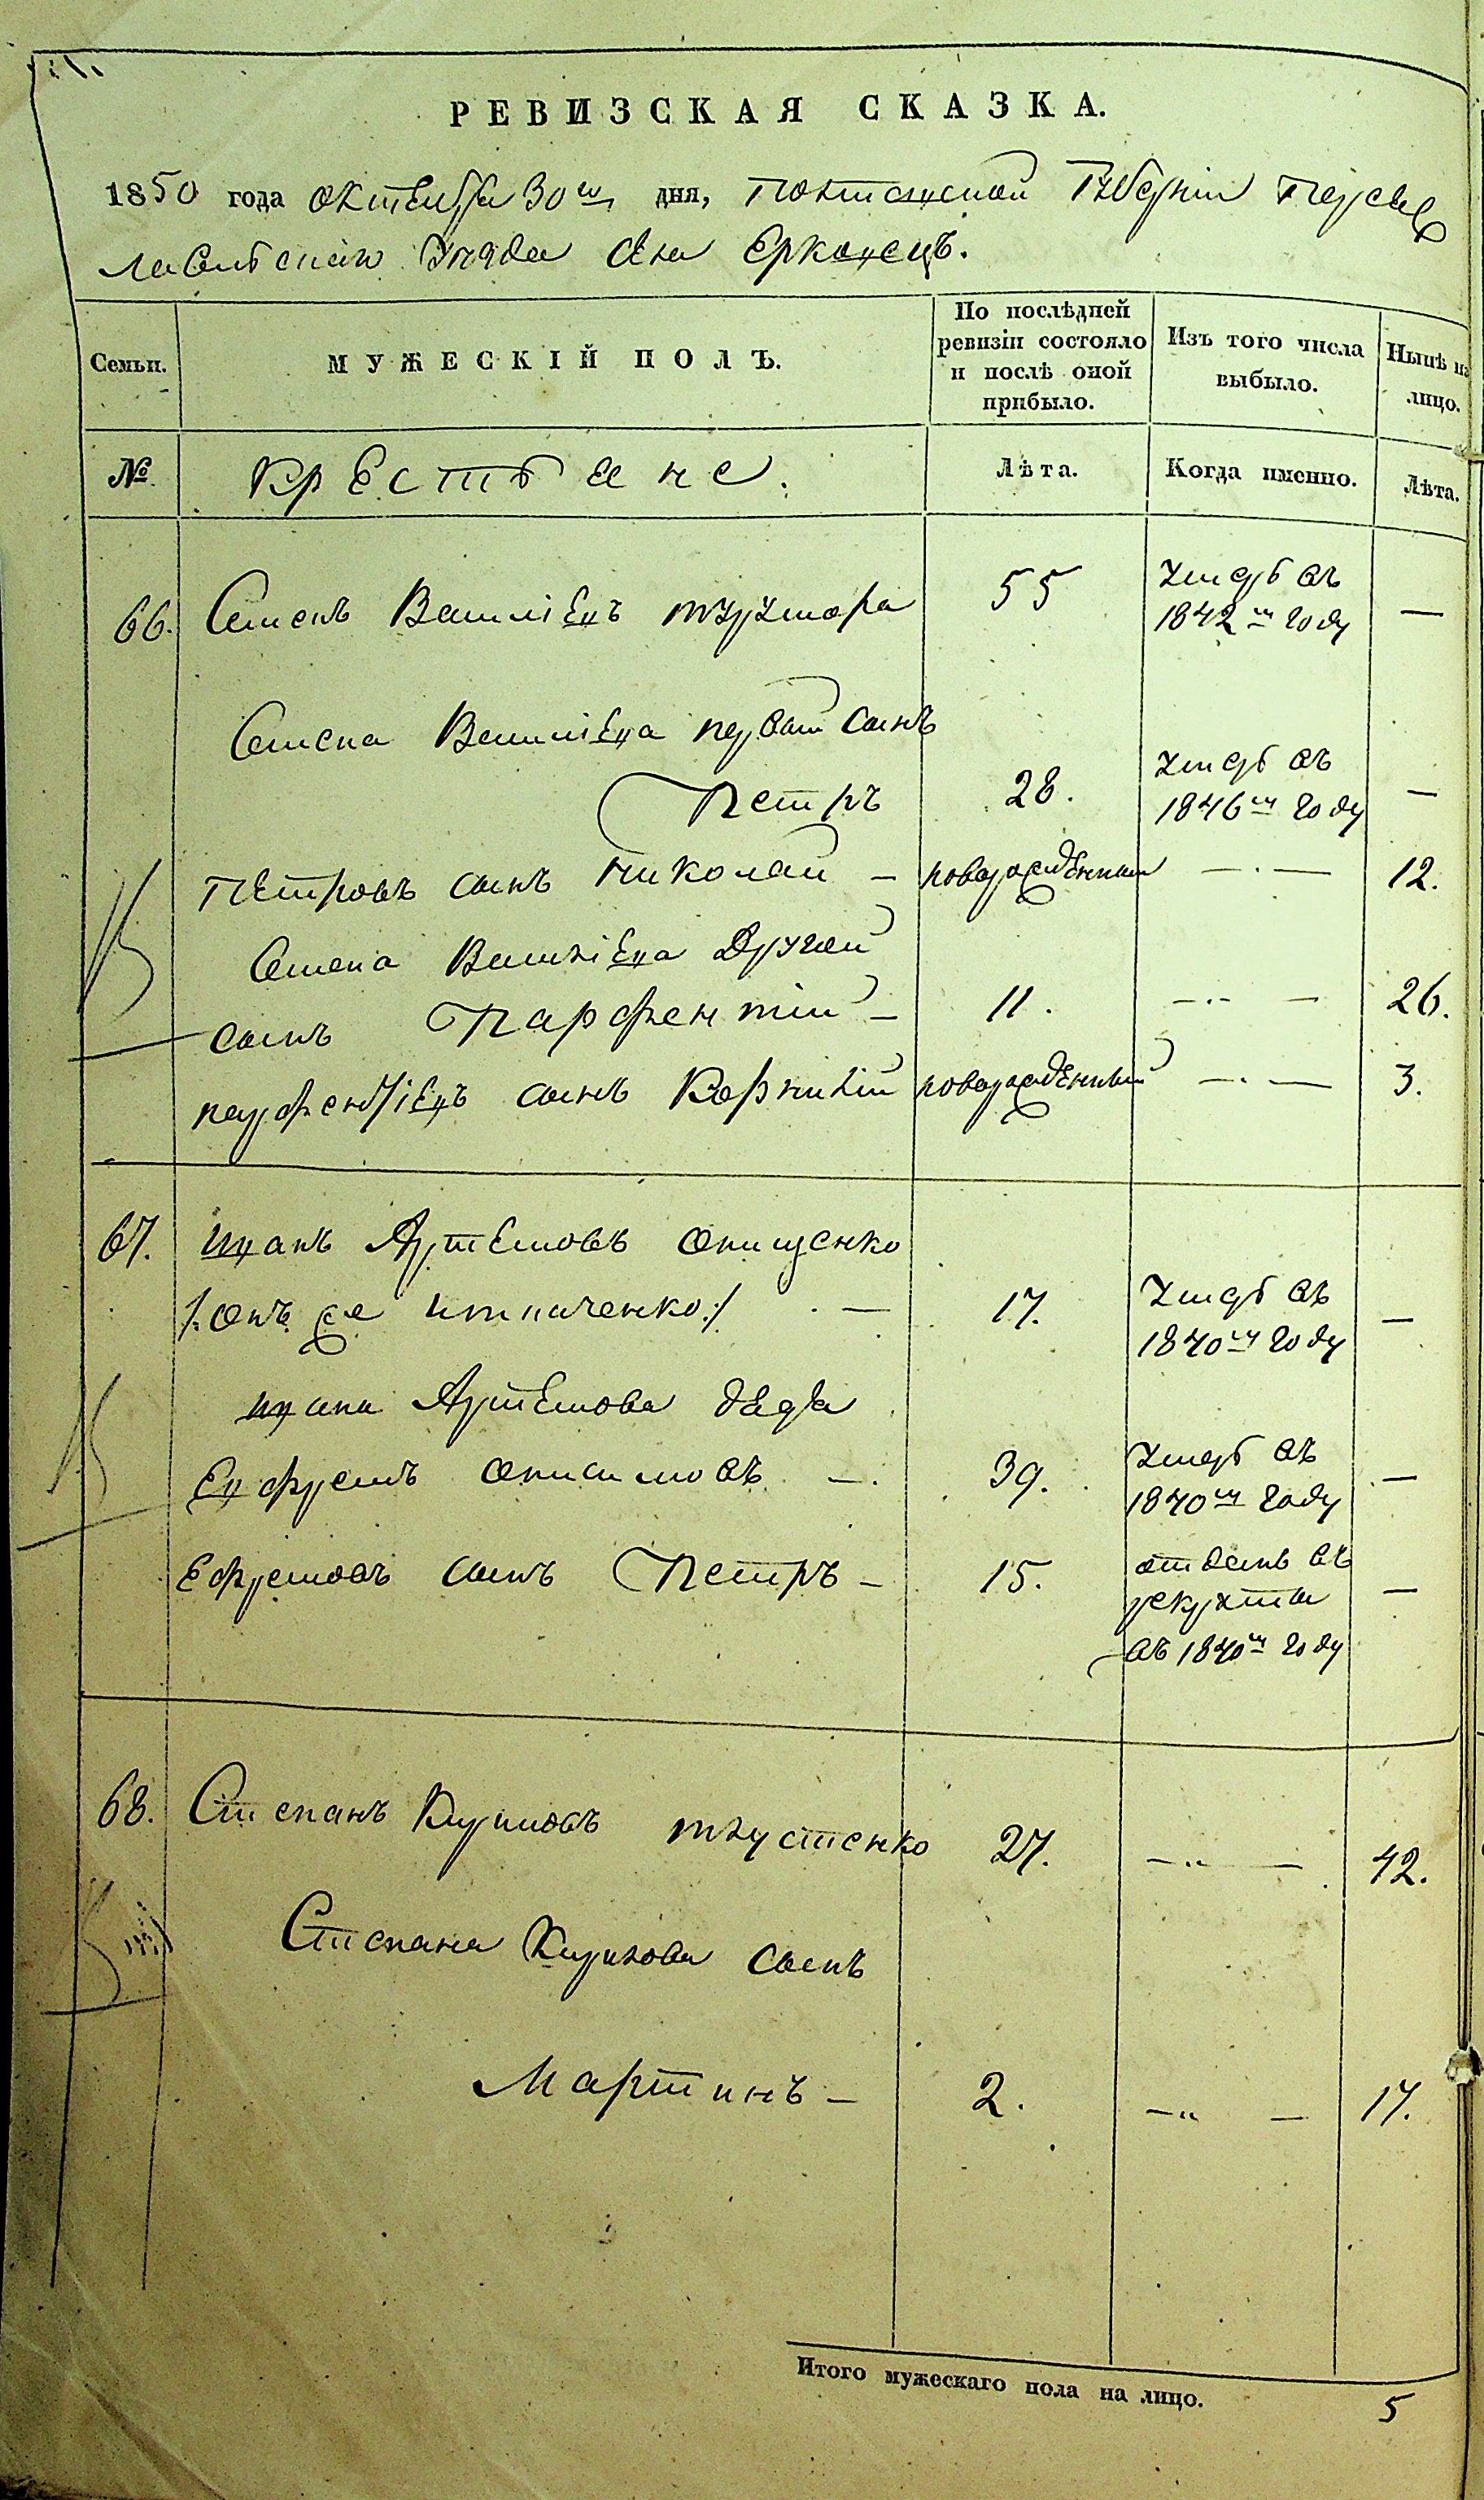 РЕВИЗСКАЯ СКАЗКА.
1850 года октября 30го дня, Полтавской Губерніи Переяс
лавского Уезда села Ерковецъ.
Семьи.
МУЖЕСКІЙ ПОЛЪ.
По послѣдней ревизіи состояло и послѣ оной прибыло.
Изъ того числа выбыло.
Нынѣ на лицо.
№.
Крестьяне.
Лѣта.
Когда именно.
Лѣта.
66. Семенъ Василіевъ 55 умеръ въ 1842м году —
Семена Василіева первый сынъ
Петръ 28. умеръ въ 1846м году —
Петровъ сынъ Николай — новорожденный — . — 12.
Семена Василіева другой
сынъ Парфентій — 11. — . — 26.
парфентіевъ сынъ Корнилій новорожденный — . — 3.
67. Иванъ Артемовъ Онищенко
/:онъ же Игначенко:/ — 17. Умеръ въ 1840м году —
Ивана Артемова дядя
Евфремъ Онисимовъ — 39. Умеръ въ 1840м году —
Ефремовъ сынъ Петръ — 15. отданъ въ рекруты въ 1840м году —
68. Степанъ Кириловъ Тлустенко 27. — " — 42.
Степана Кирилова сынъ
Мартинъ — 2. — " — 17.
Итого мужескаго пола на лицо. 5